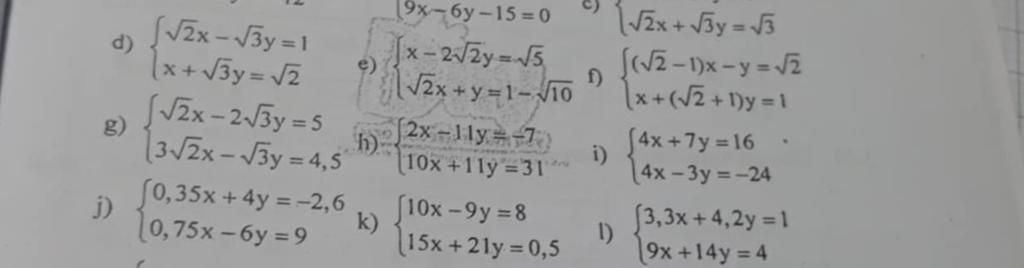 9x-6y-15=0
c)
√2x+√3y=√3
d)
√2x-√3y=1
x+√3y=√2
e)
x-2√2y=√5
√2x+y=1-√10
f)
(√2-1)x-y=√2
x+(√2+1)y=1
g)
√2x-2√3y=5
3√2x-√3y=4,5
h)
2x-11y=-7
10x+11y=31
i)
4x+7y=16
4x-3y=-24
j)
0,35x+4y=-2,6
0,75x-6y=9
k)
10x-9y=8
15x+21y=0,5
l)
3,3x+4,2y=1
9x+14y=4